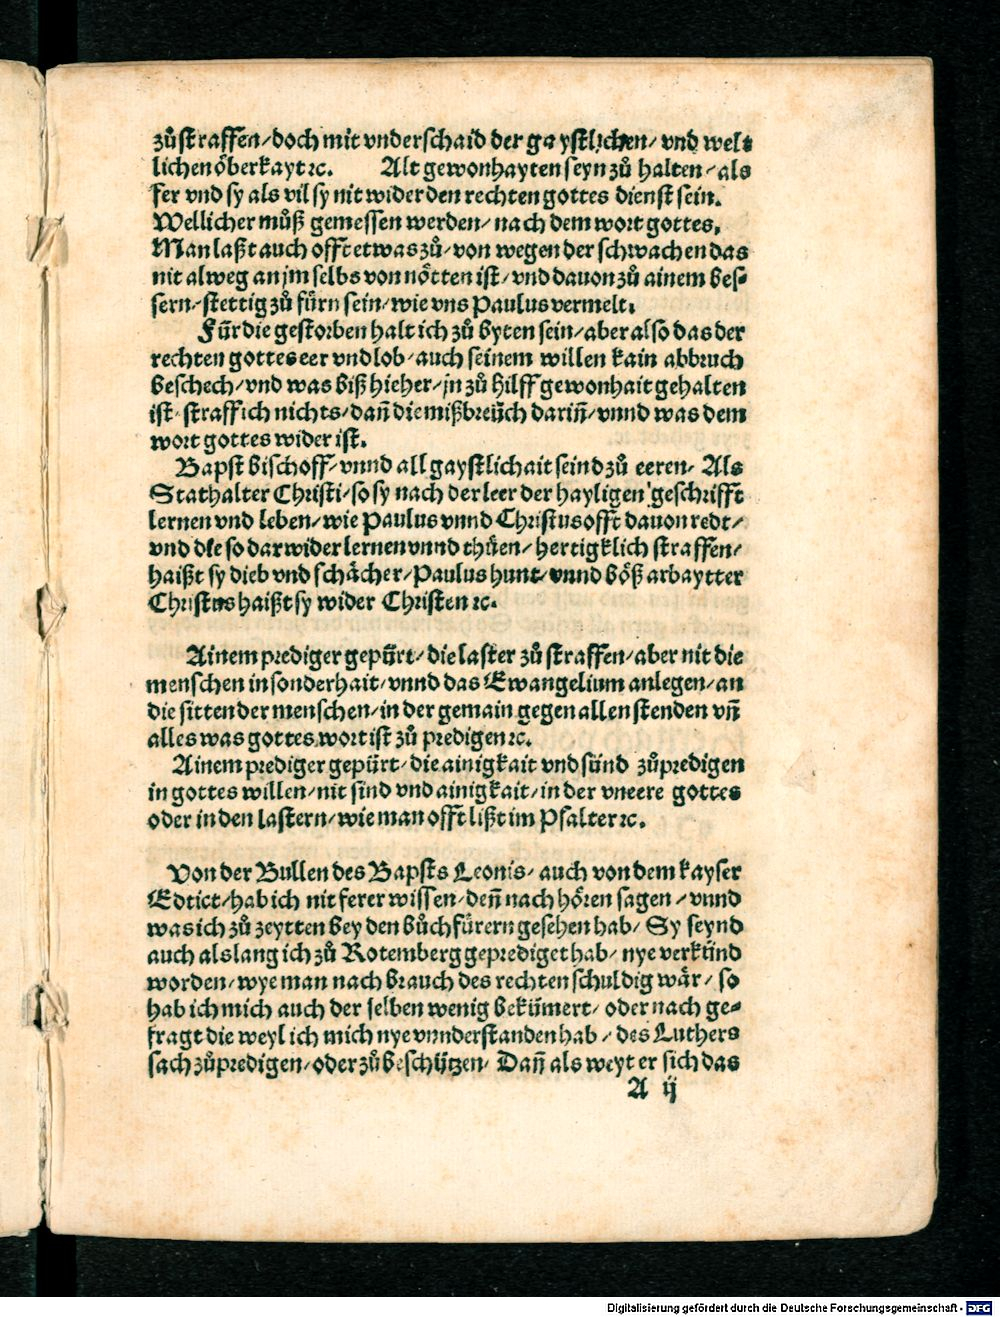 zů straffen/ doch mit vnderschaid der gaystlichen/ vnd welt
lichen öberkayt ⁊c. Alt gewonhayten seyn zů halten/ als
fer vnd sy als vil sy nit wider den rechten gottes dienst sein.
Wellicher můß gemessen werden/ nach dem wort gottes.
Man laßt auch offt etwas zů/ von wegen der schwachen das
nit alweg an jm selbs von nötten ist/ vnd dauon zů ainem bes-
sern/ stettig zů fürn sein/ wie vns Paulus vermelt.
Für die gestorben halt ich zů byten sein/ aber also das der
rechten gottes eer vnd lob/ auch seinem willen kain abbruch
beschech/ vnd was biß hieher/ jn zů hilff gewonhait gehalten
ist/ straff ich nichts/ dañ die mißbreüch dariñ/ vnnd was dem
wort gottes wider ist.
Bapst bischoff/ vnnd all gaystlichait seind zů eeren/ Als
Stathalter Christi/ so sy nach der leer der hayligen geschrifft
lernen vnd leben/ wie Paulus vnnd Christus offt dauon redt/
vnd die so darwider lernen vnnd thüen/ hertigklich straffen/
haißt sy dieb vnd schächer/ Paulus hunt/ vnnd böß arbaytter
Christus haißt sy wider Christen ⁊c.
Ainem prediger gepürt/ die laster zů straffen/ aber nit die
menschen in sonderhait/ vnnd das Ewangelium anlegen/ an
die sitten der menschen/ in der gemain gegen allen stenden vñ
alles was gottes wort ist zů predigen ⁊c.
Ainem prediger gepürt/ die ainigkait vnd sünd zů predigen
in gottes willen/ nit sind vnd ainigkait/ in der vneere gottes
oder in den lastern/ wie man offt lißt im Psalter ⁊c.
Von der Bullen des Bapsts Leonis/ auch von dem kayser
Edtict/ hab ich nit ferer wissen/ deñ nach hören sagen/ vnnd
was ich zů zeytten bey den bůchfürern gesehen hab/ Sy seynd
auch als lang ich zů Rotemberg geprediget hab/ nye verkünd
worden/ wye man nach brauch des rechten schuldig wär/ so
hab ich mich auch der selben wenig bekümert/ oder nach ge-
fragt die weyl ich mich nye vnnderstanden hab/ des Luthers
sach zů predigen/ oder zů beschützen/ Dañ als weyt er sich das
A ij
Digitalisierung gefördert durch die Deutsche Forschungsgemeinschaft - DFG